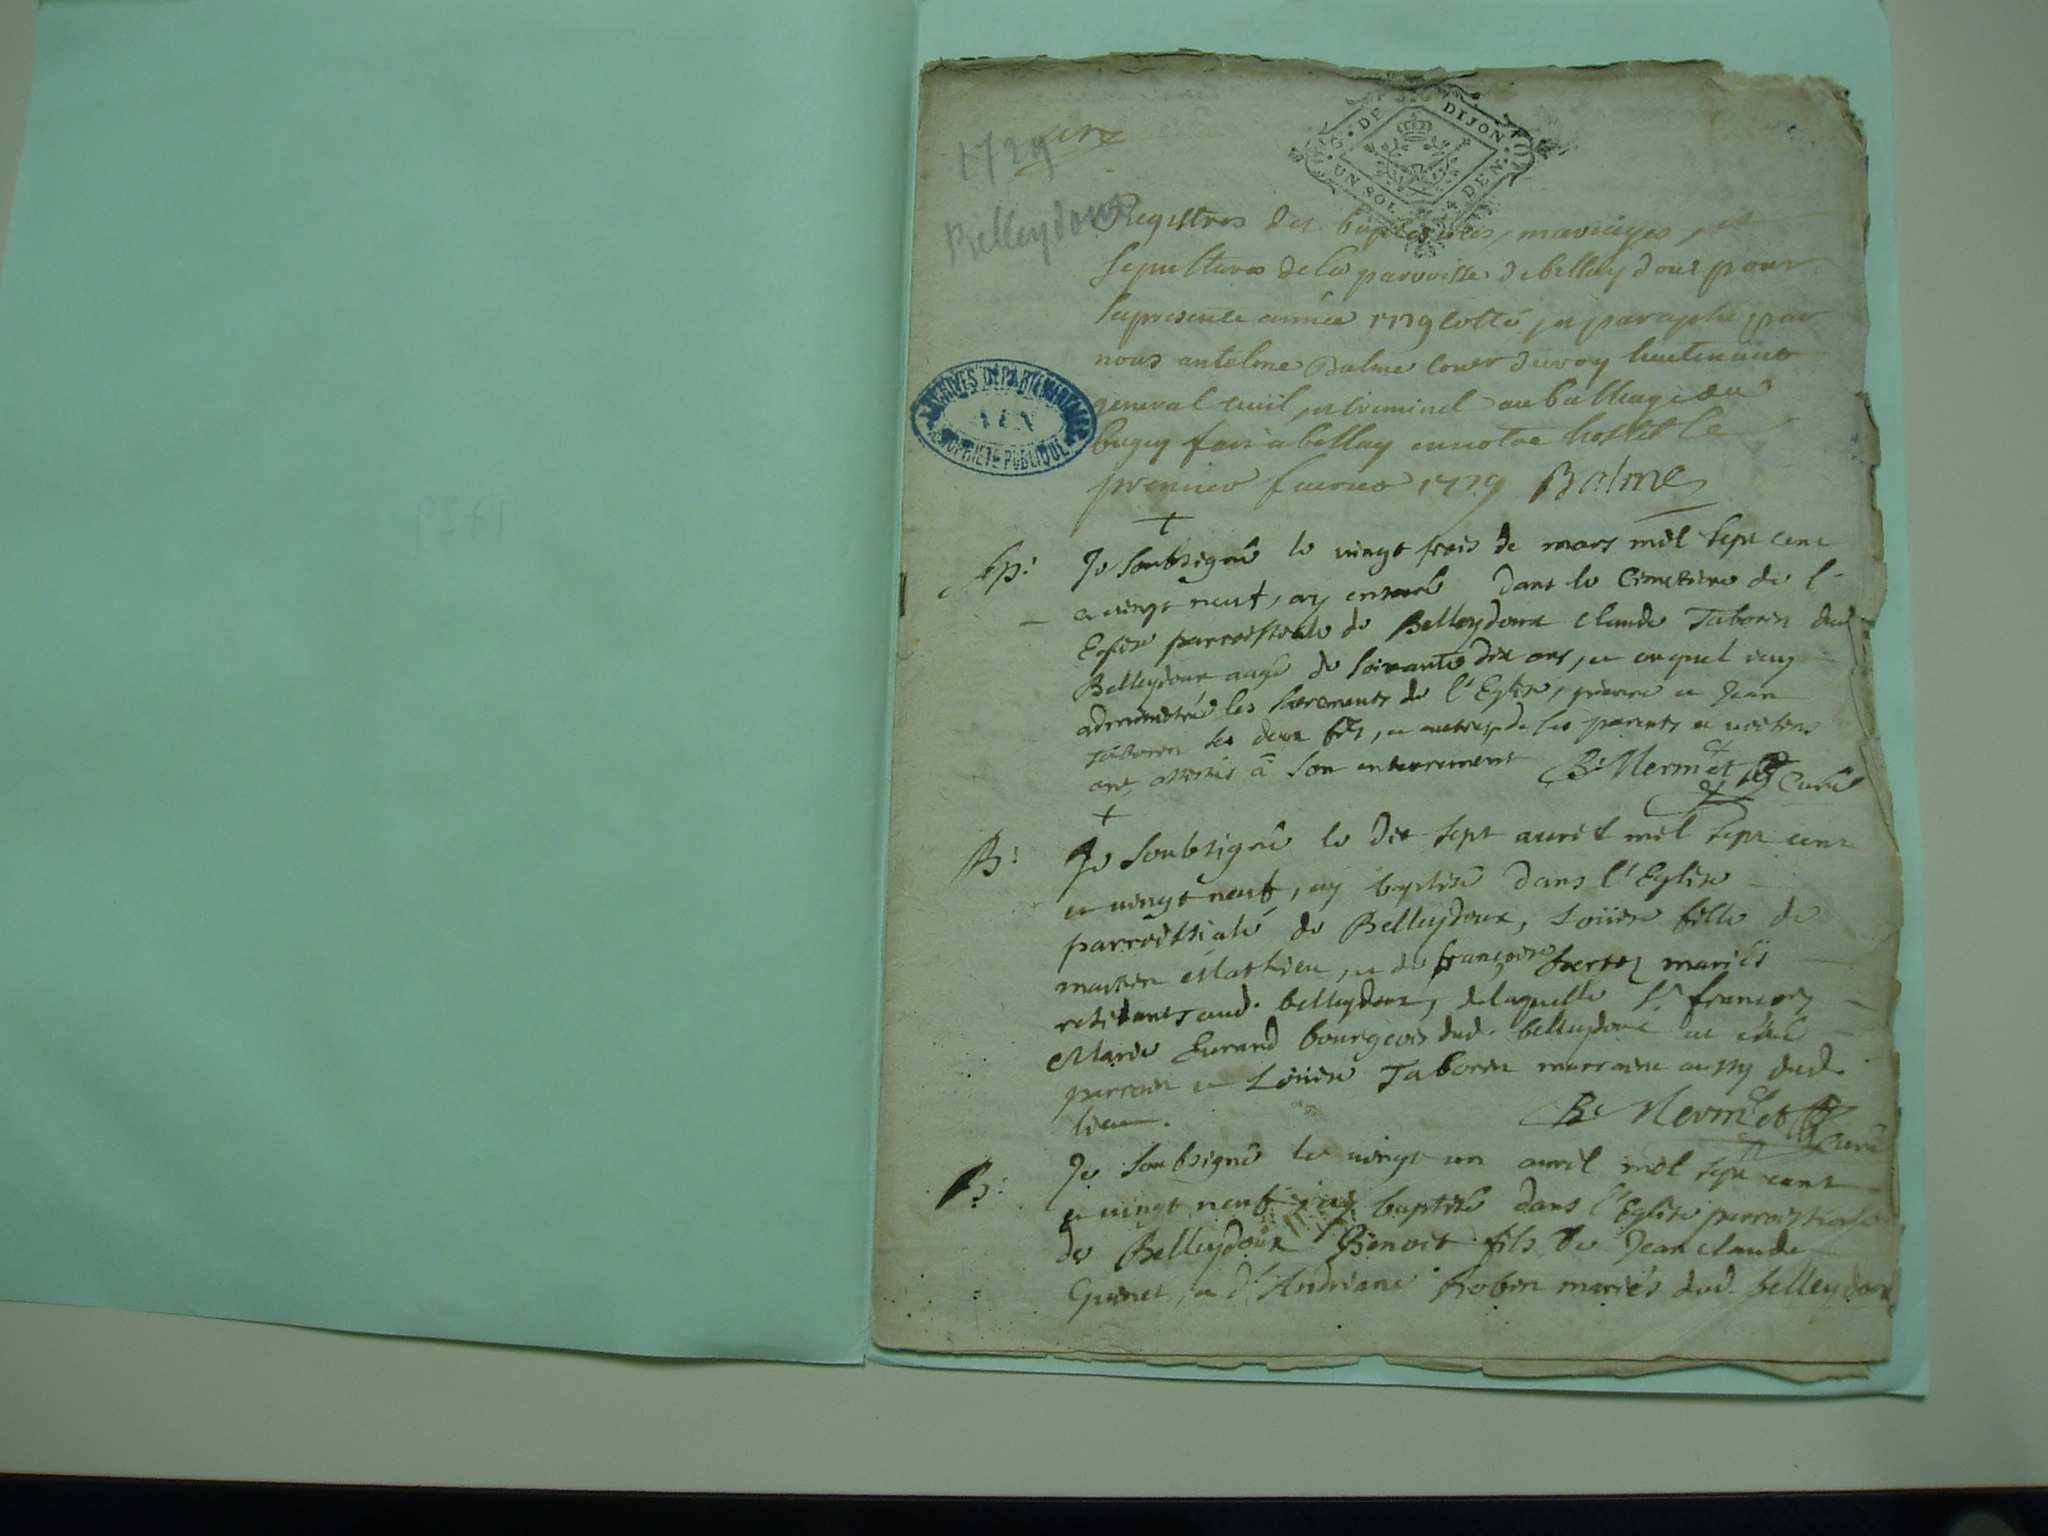 1729
Belleydoux
G. DE DIJON
UN SOL 4 DEN.
Registres des baptesmes, mariages, et
sepultures de la parroisse de belleydoux pour
la presente année 1729 cotté et paraphé par
nous antelme Balme Con.er du roy lieutenant
general civil, et criminel au balliage du
bugey fait a belley en notre hostel le
premier feuvrier 1729 Balme
ARCHIVES DÉPARTEMENTALES
AIN
PROPRIÉTÉ PUBLIQUE
Sep: Je soubsigné le vingt trois de mars mil sept cent
et vingt neuf, ay enterré dans le Cimetiere de l'
Eglise parroissiale de Belleydoux Claude Taborin dud
Belleydoux agé de soixante dix ans, et auquel j'ay
administré les sacrements de l'Eglise, pierre et Jean
Taborin ses deux fils, et autres de ses parents et voisins
ont assistés à son enterrement B. Mermet Curé
B: Je soubsigné le dix sept avril mil sept cent
et vingt neuf, ay baptisé dans l'Eglise
parroissiale de Belleydoux, Loüise fille de
Mathieu, et de françoise mariés
residants aud. belleydoux, de laquelle Sr. françois
Marie Durand bourgeois dud. belleydoux at esté
parrain et Loüise Taborin marraine aussy dud.
lieu. B. Mermet Curé
B: Je soubsigné le vingt un avril mil sept cent
et vingt neuf, ay baptisé dans l'Eglise parroissiale
de Belleydoux Benoit fils de Jean claude
Guinet, et d'Andriane Robin mariés dud. belleydoux